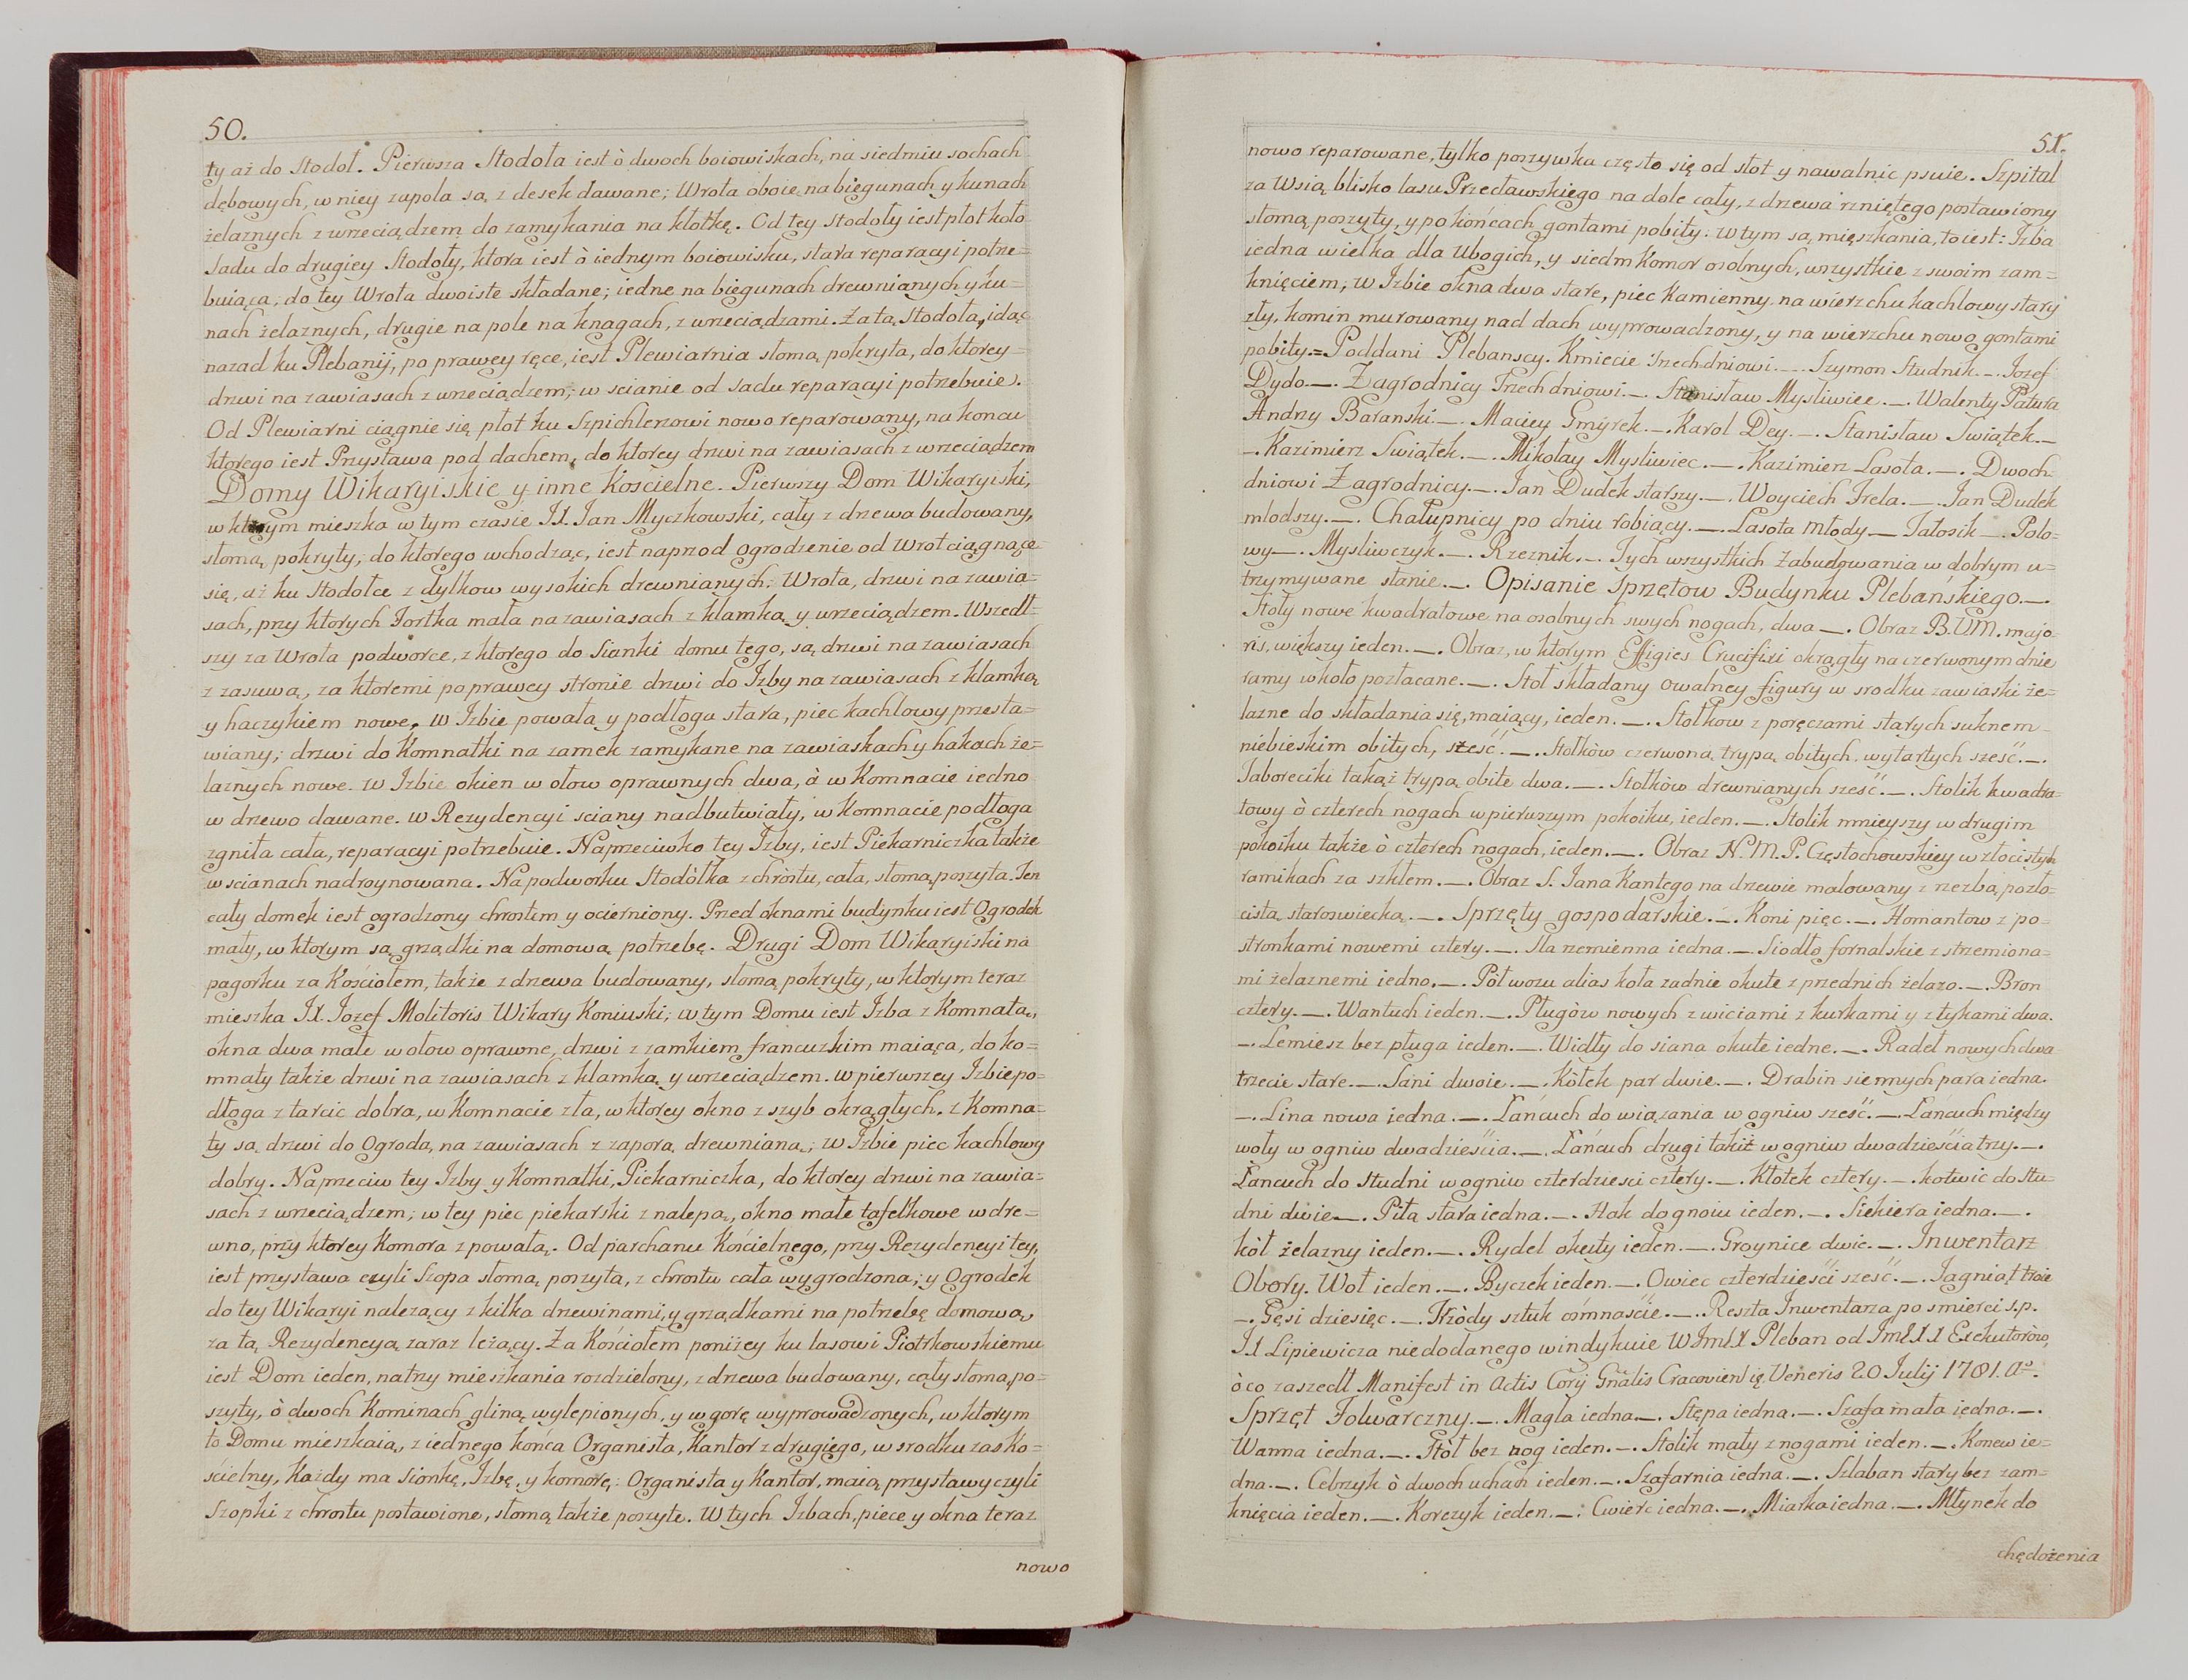 50.
ty aż do Stodoł. Pierwsza Stodoła iest ò dwoch boiowiskach, na siedmiu sochach
dębowych, w niey zapola są z desek dawane; Wrota oboie na biegunach y kunach
żelaznych z wrzeciądzem do zamykania na kłotkę. Od tey Stodoły iest płot koło
Sadu do drugiey Stodoły, ktora iest ò iednym boiowisku, stara reparacyi potrze=
buiąca, do tey Wrota dwoiste składane; iedne na biegunach drewnianych y ku=
nach żelaznych, drugie na pole na knagach, z wrzeciądzami. Za tą Stodołą, idąc
nazad ku Plebanij, po prawey ręce, iest Plewiarnia słomą pokryta, do ktorey=
drzwi na zawiasach z wrzeciądzem, w scianie od Sadu reparacyi potrzebuie.
Od Plewiarni ciągnie się płot ku Szpichlerzowi nowo reparowany, na koncu
ktorego iest Przystawa pod dachem, do ktorey drzwi na zawiasach z wrzeciądzem
Domy Wikaryiskie y inne Koscielne. Pierwszy Dom Wikaryiski,
w ktorym mieszka w tym czasie IX. Ian Myczkowski, cały z drzewa budowany,
słomą pokryty, do ktorego wchodząc, iest naprzod ogrodzenie od Wrot ciągnące
się, aż ku Stodołce z dylkow wysokich drewnianych. Wrota, drzwi na zawia=
sach, przy ktorych Fortka mała na zawiasach z klamką y wrzeciądzem. Wszedł=
szy za Wrota podworce, z ktorego do Sianki domu tego, są drzwi na zawiasach
z zasuwą, za ktoremi po prawey stronie drzwi do Izby na zawiasach z klamką
y haczykiem nowe. W Izbie powała y podłoga stara, piec kachlowy przesta=
wiany; drzwi do Komnatki na zamek zamykane na zawiaskach y hakach że=
laznych nowe. W Izbie okien w ołow oprawnych dwa, à w Komnacie iedno
w drzewo dawane. W Rezydencyi sciany nadbutwiały, w Komnacie podłoga
zgniła cała, reparacyi potrzebuie. Naprzeciwko tey Izby, iest Piekarniczka także
w scianach nadroynowana. Na podworku Stodółka z chróstu, cała, słomą poszyta. Ten
cały domek iest ogrodzony chrostem y ocierniony. Przed oknami budynku iest Ogrodek
mały, w ktorym są grządki na domową potrzebę. Drugi Dom Wikaryiski na
pagorku za Kościołem, także z drzewa budowany, słomą pokryty, w ktorym teraz
mieszka IX. Iozef Molitoris Wikary Koniuski; w tym Domu iest Izba z Komnatą,
okna dwa małe w ołow oprawne, drzwi z zamkiem francuzkim maiąca, do ko=
mnaty także drzwi na zawiasach z klamką y wrzeciądzem. W pierwszey Izbie po=
dłoga z tarcic dobra, w Komnacie zła, w ktorey okno z szyb okrągłych. Z Komna=
ty są drzwi do Ogroda, na zawiasach z zaporą drewnianą; w Izbie piec kachlowy
dobry. Naprzeciw tey Izby y Komnatki, Piekarniczka, do ktorey drzwi na zawia=
sach z wrzeciądzem; w tey piec piekarski z nalepą, okno małe tafelkowe w dre=
wno, przy ktorey Komora z powałą. Od parchanu Kościelnego, przy Rezydencyi tey,
iest przystawa czyli Szopa słomą poszyta, z chrostu cała wygrodzona; y Ogrodek
do tey Wikaryi należący z kilka drzewinami, y grządkami na potrzebę domową,
za tą Rezydencyą zaraz leżący. Za Kościołem poniżey ku lasowi Piotrkowskiemu
iest Dom ieden, na trzy mieszkania rozdzielony, z drzewa budowany, cały słomą po=
szyty, ò dwoch Kominach gliną wylepionych, y w gorę wyprowadzonych, w ktorym
to Domu mieszkaią, z iednego końca Organista, Kantor z drugiego, w srodku zaś Ko=
ścielny, Każdy ma Sionkę, Izbę, y komorę: Organista y Kantor, maią przystawy czyli
Szopki z chrostu postawione, słomą także poszyte. W tych Izbach, piece y okna teraz
nowo
51.
nowo reparowane, tylko poszywka często się od słot y nawalnic psuie. Szpital
za Wsią blisko lasu Przecławskiego na dole cały, z drzewa rzniętego postawiony
słomą poszyty, y po końcach gontami pobity: w tym są mięszkania, to iest: Izba
iedna wielka dla Ubogich, y siedm Komor osobnych, wszystkie z swoim zam=
knięciem; w Izbie okna dwa stare, piec Kamienny na wierzchu kachlowy stary
zły, komin murowany nad dach wyprowadzony, y na wierzchu nowo gontami
pobity.= Poddani Plebanscy. Kmiecie Trzechdniowi._. Szymon Studnik._. Iozef
Dydo._. Zagrodnicy Trzechdniowi._. Stanisław Mysliwiec._. Walenty Patura
Andrzy Baranski._. Maciey Gmyrek._. Karol Dey._. Stanisław Swiątek._
_. Kazimierz Swiątek._. Mikołay Mysliwiec._. Kazimierz Lasota._. Dwoch
dniowi Zagrodnicy._. Ian Dudek starszy._. Woyciech Trela._. Ian Dudek
młodszy._. Chałupnicy po dniu robiący._. Lasota Młody_. Iałosik_. Polo=
wy_. Mysliwczyk._. Rzeznik._. Tych wszystkich Zabudowania w dobrym u=
trzymywane stanie._. Opisanie Sprzętow Budynku Plebańskiego._.
Stoły nowe kwadratowe na osobnych swych nogach, dwa_. Obraz B.V.M. majo=
ris, większy ieden._. Obraz, w ktorym Effigies Crucifixi okrągły na czerwonym dnie
ramy wkoło pozłacane._. Stoł składany owalney figury w srodku zawiaski że=
lazne do składania się, maiący, ieden._. Stołkow z poręczami starych suknem
niebieskim obitych, sześć._. Stołków czerwoną trypą obitych, wytartych sześć._.
Taboreciki takąż trypą obite dwa._. Stołków drewnianych sześć._. Stolik kwadra=
towy ò czterech nogach w pierwszym pokoiku, ieden._. Stolik mnieyszy w drugim
pokoiku także ò czterech nogach, ieden._. Obraz N.M.P. Częstochowskiey w złocistych
ramikach za szkłem._. Obraz S. Iana Kantego na drzewie malowany z rzezbą pozło=
cistą staroswiecką._. Sprzęty gospodarskie._. Koni pięc._. Homantow z po=
stronkami nowemi cztery._. Sla rzemienna iedna._. Siodło fornalskie z strzemiona=
mi żelaznemi iedno._. Pół wozu alias koła zadnie okute z przednich żelazo._. Bron
cztery._. Wantuch ieden._. Pługów nowych z wiciami z kurkami y z tykami dwa.
_. Lemiesz bez pługa ieden._. Widły do siana okute iedne._. Radeł nowych dwa
trzecie stare._. Sani dwoie._. Kółek par dwie._. Drabin siennych para iedna.
_. Lina nowa iedna._. Łańcuch do wiązania w ogniw sześć._. Łańcuch między
woły w ogniw dwadzieścia._. Łańcuch drugi takiż w ogniw dwadzieścia trzy._.
Łancuch do Studni w ogniw czterdziesci cztery._. Kłotek cztery._. kotwic do Stu=
dni dwie_. Piła stara iedna._. Hak do gnoiu ieden._. Siekiera iedna._.
kół żelazny ieden._. Rydel okuty ieden._. Groynice dwie._. Inwentarz
Obory. Woł ieden._. Byczek ieden._. Owiec czterdzieści sześć._. Iagniąt troie
_. Gęsi dziesięc._. Trzòdy sztuk ośmnaście._. Reszta Inwentarza po smierci s.p.
IX Lipiewicza niedodanego windykuie WJmIX Pleban od JmIXX Exekutorów,
ò co zaszedł Manifest in Actis Corij Gnâlis Cracovien ię. Veneris 20 Julij 1781. Aº.
Sprzęt Folwarczny._. Magla iedna._. Stępa iedna._. Szafa mała iedna._.
Wanna iedna._. Stół bez nog ieden._. Stolik mały z nogami ieden._. Konew ie=
dna._. Cebrzyk ò dwoch uchach ieden._. Szafarnia iedna._. Szlaban stary bez zam=
knięcia ieden._. Korczyk ieden._. Cwierc iedna._. Miarka iedna._. Młynek do
chędożenia